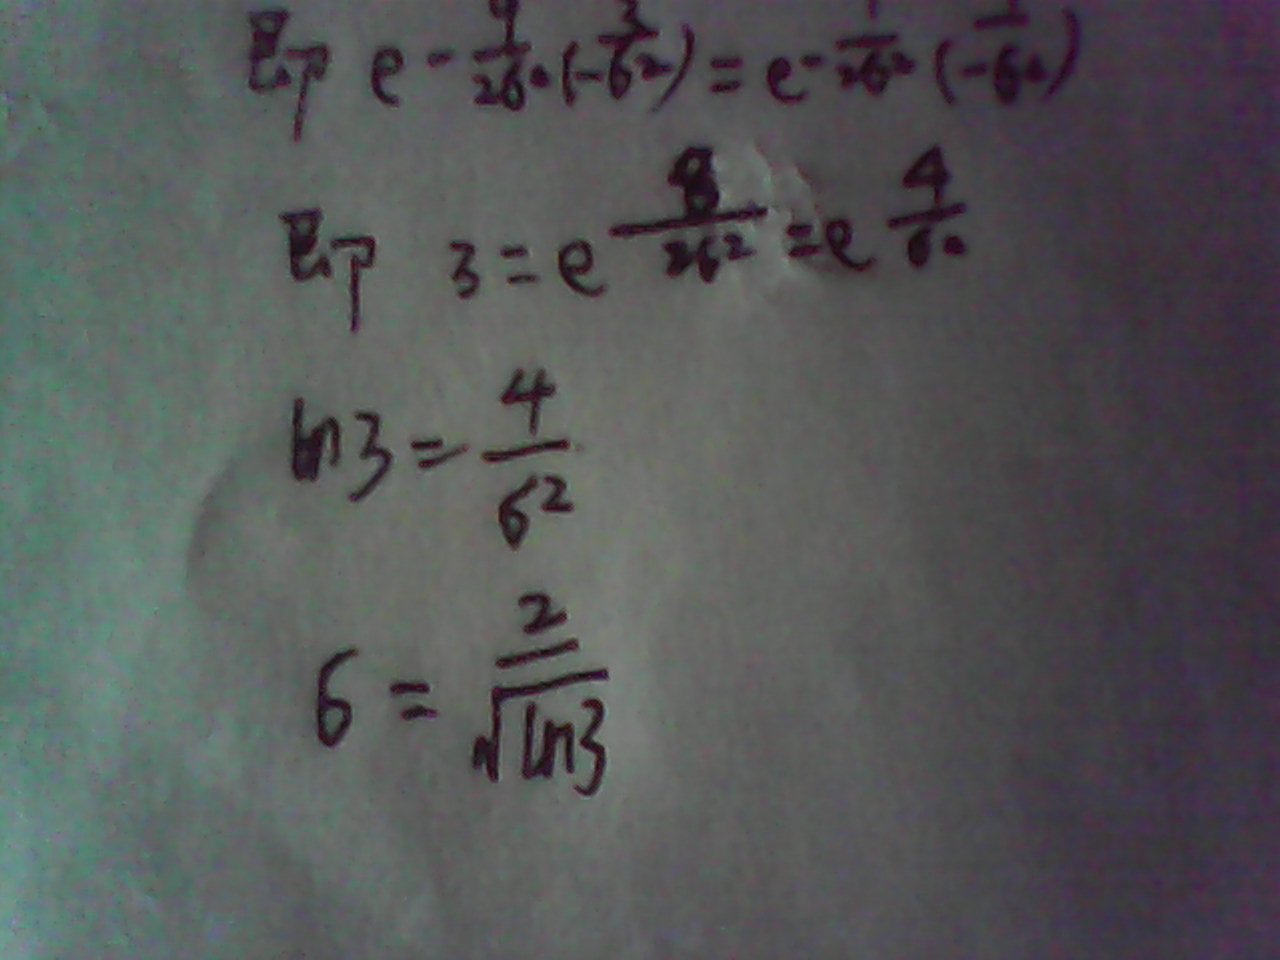 即 e^{-\frac{9}{2σ^2}}·(-\frac{3}{σ^2}) = e^{-\frac{1}{2σ^2}}(-\frac{1}{σ^2})
即 3 = e^{\frac{8}{2σ^2}} = e^{\frac{4}{σ^2}}
ln3 = \frac{4}{σ^2}
σ = \frac{2}{\sqrt{ln3}}